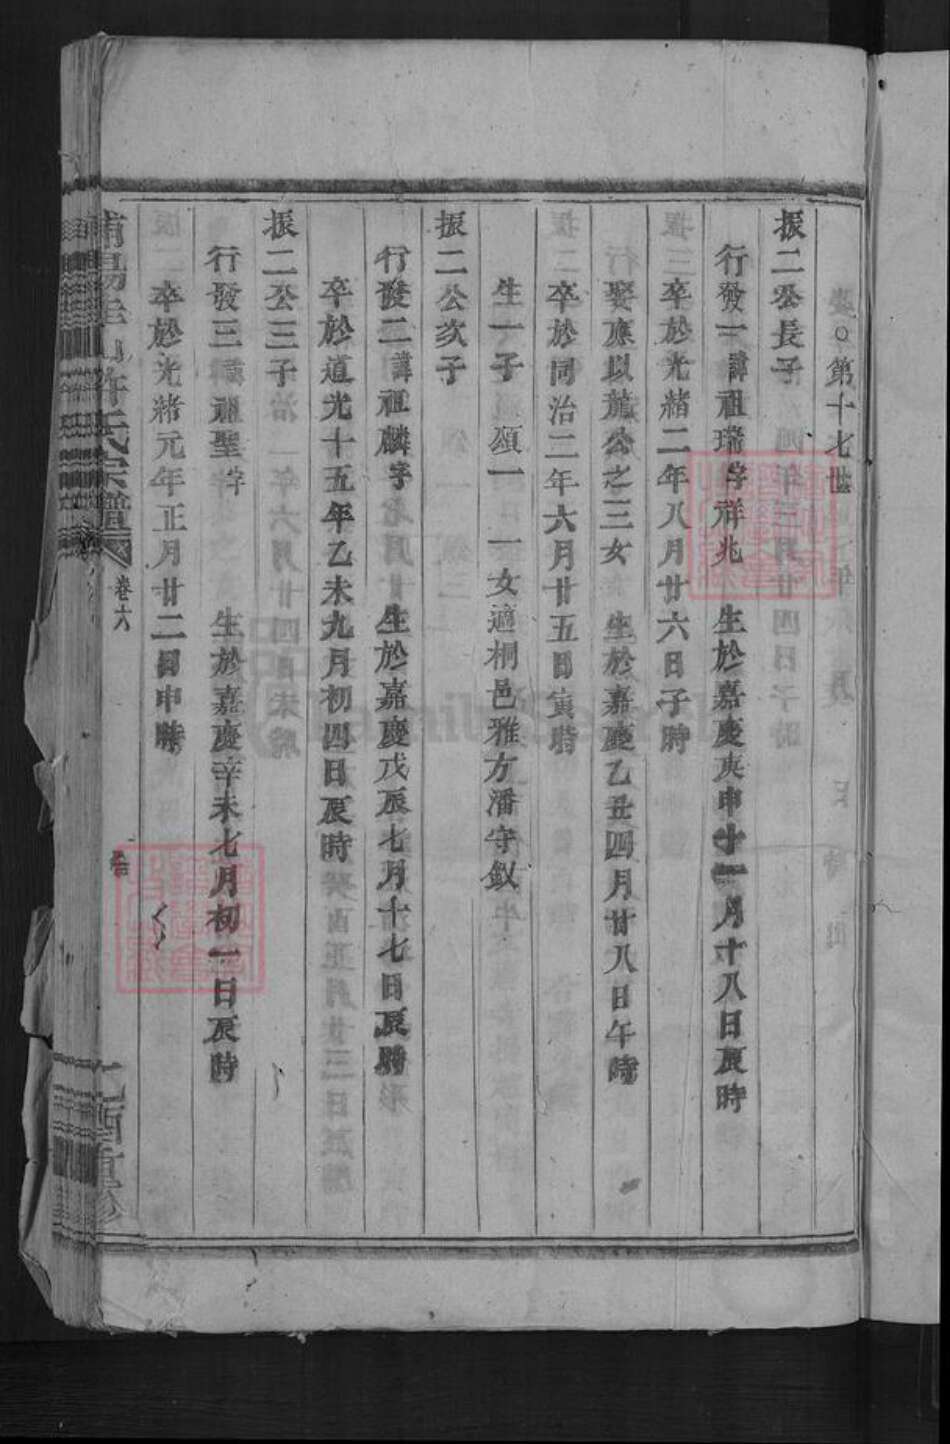 ○第十七世
振二公長子
行發一諱祖瑞字祥兆 生於嘉慶庚申十一月十八日辰時
卒於光緒二年八月廿六日子時
娶應以龍公之三女 生於嘉慶乙丑四月廿八日午時
卒於同治二年六月廿五日寅時
生一子 顯一 一女適桐邑雅方潘守釵
振二公次子
行發二諱祖麟字 生於嘉慶戊辰七月十七日辰時
卒於道光十五年乙未九月初四日辰時
振二公三子
行發三諱祖聖字 生於嘉慶辛未七月初一日辰時
卒於光緒元年正月廿二日申時
許氏宗譜 卷六